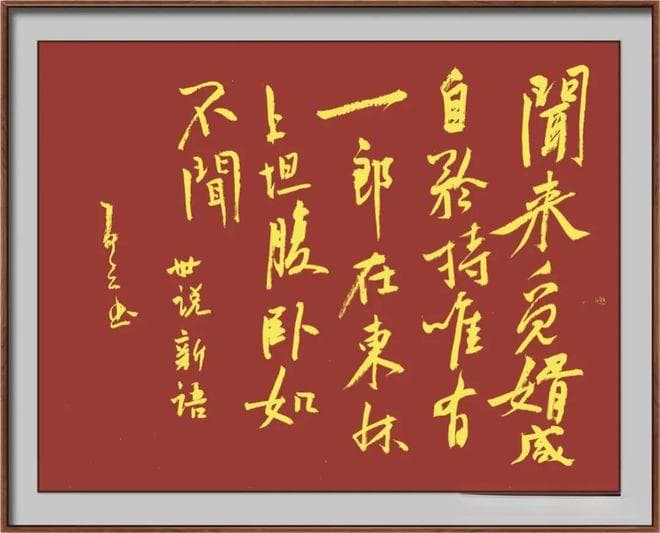 聞来覓婿咸
自矜持唯有
一郎在東床
上坦腹卧如
不聞
世说新语